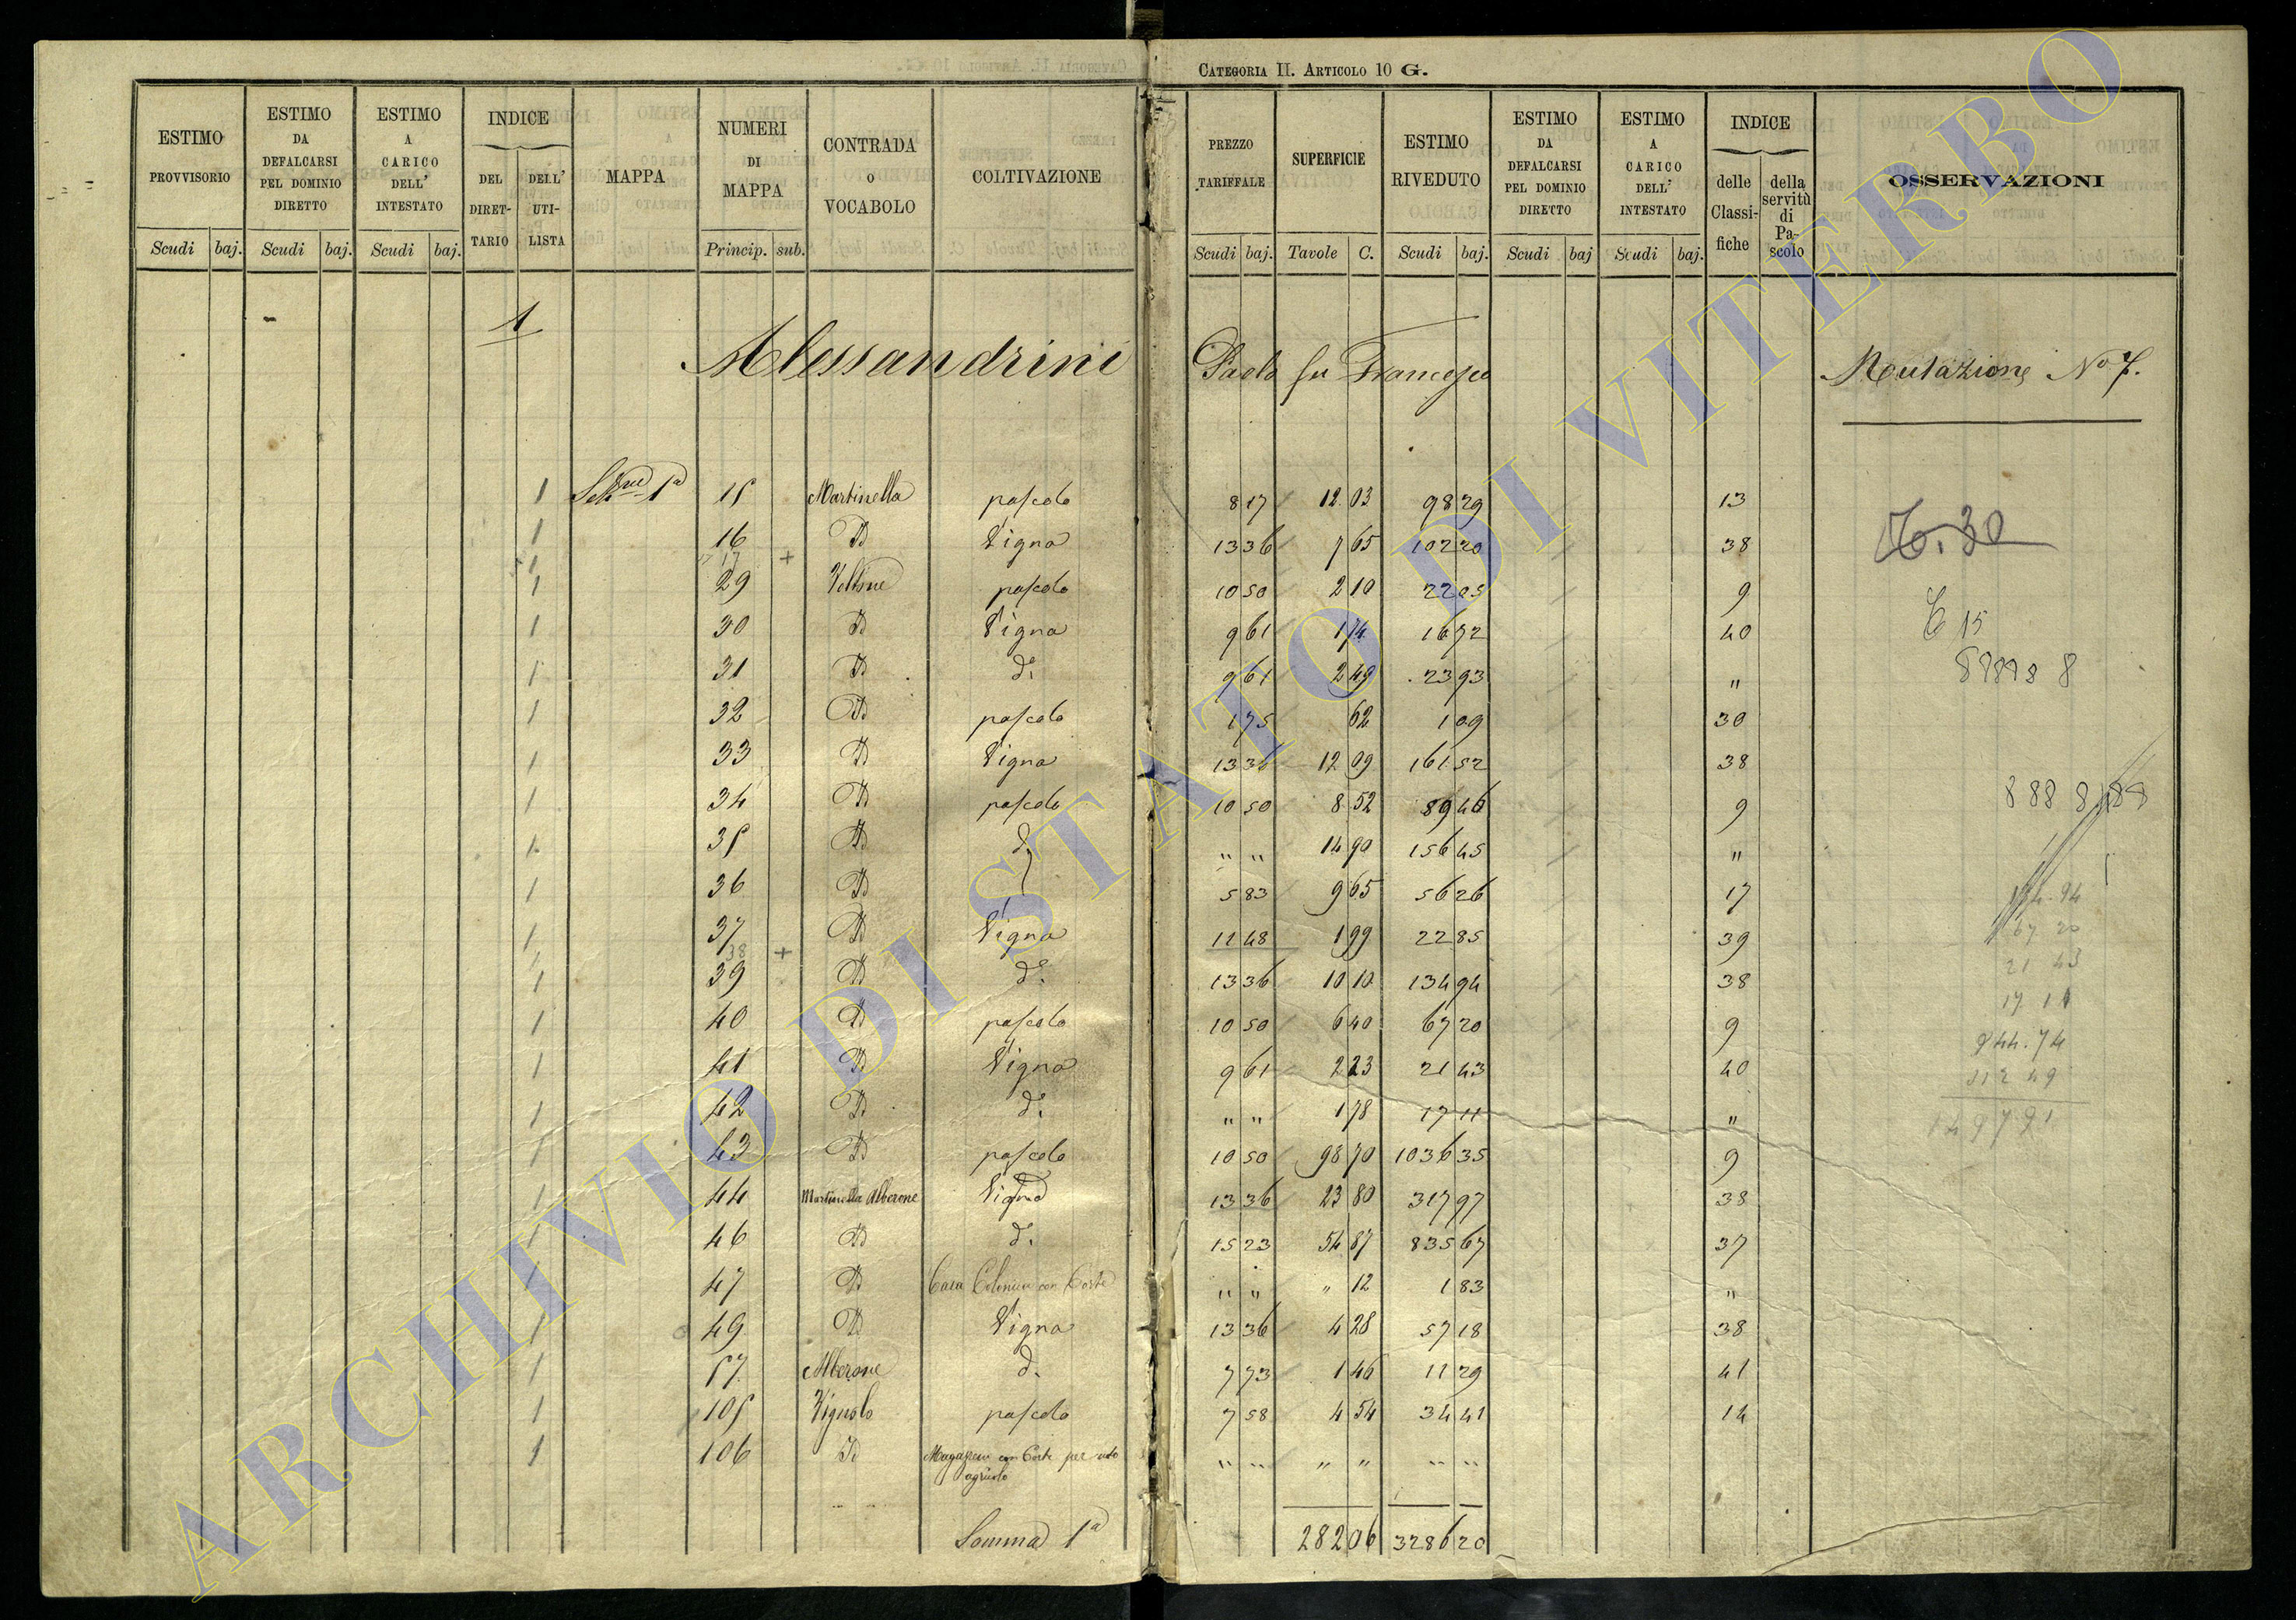 CATEGORIA II. ARTICOLO 10 G.
ESTIMO PROVVISORIO Scudi baj. | ESTIMO DA DEFALCARSI PEL DOMINIO DIRETTO Scudi baj. | ESTIMO A CARICO DELL' INTESTATO Scudi baj. | INDICE DEL DIRET-TARIO DELL' UTI-LISTA | MAPPA | NUMERI DI MAPPA Princip. sub. | CONTRADA O VOCABOLO | COLTIVAZIONE | PREZZO TARIFFALE Scudi baj. | SUPERFICIE Tavole C. | ESTIMO RIVEDUTO Scudi baj. | ESTIMO DA DEFALCARSI PEL DOMINIO DIRETTO Scudi baj | ESTIMO A CARICO DELL' INTESTATO Scudi baj. | INDICE delle Classi-fiche della servitù di Pa-scolo | OSSERVAZIONI
1
Alessandrini Paolo fu Francesco Mutazione No 7.
1 Sezne 1a 15 Martinella pascolo 8 17 12 03 98 29 13
1 16 D Vigna 13 36 7 65 102 20 38
1 17 +
1 29 pascolo 10 50 2 10 22 05 9
1 30 D Vigna 9 61 1 74 16 72 40
1 31 D do. 9 61 2 49 23 93 "
1 32 D pascolo 1 75 62 1 09 30
1 33 D Vigna 13 36 12 09 161 52 38
1 34 D pascolo 10 50 8 52 89 46 9
1 35 D d. " " 14 90 156 45 "
1 36 D 5 83 9 65 56 26 17
1 37 D Vigna 11 48 1 99 22 85 39
1 38 +
1 39 D do. 13 36 10 10 134 94 38
1 40 D pascolo 10 50 6 40 67 20 9
1 41 D Vigna 9 61 2 23 21 43 40
1 42 D do. " " 1 78 17 11 "
1 43 D pascolo 10 50 98 70 1036 35 9
1 44 Martinella Alberone Vigna 13 36 23 80 317 97 38
1 46 D d. 15 23 54 87 835 67 37
1 47 D Casa Colonica con Corte " " " 12 1 83 "
1 49 D Vigna 13 36 4 28 57 18 38
1 57 Alberone d. 7 73 1 46 11 29 41
1 105 Vignolo pascolo 7 58 4 54 34 41 14
1 106 D Magazzeno con Corte per uso agricolo " " " " " "
Somma 1a 282 06 3286 20
C 15
67 20
21 43
17 11
944.74
ARCHIVIO DI STATO DI VITERBO